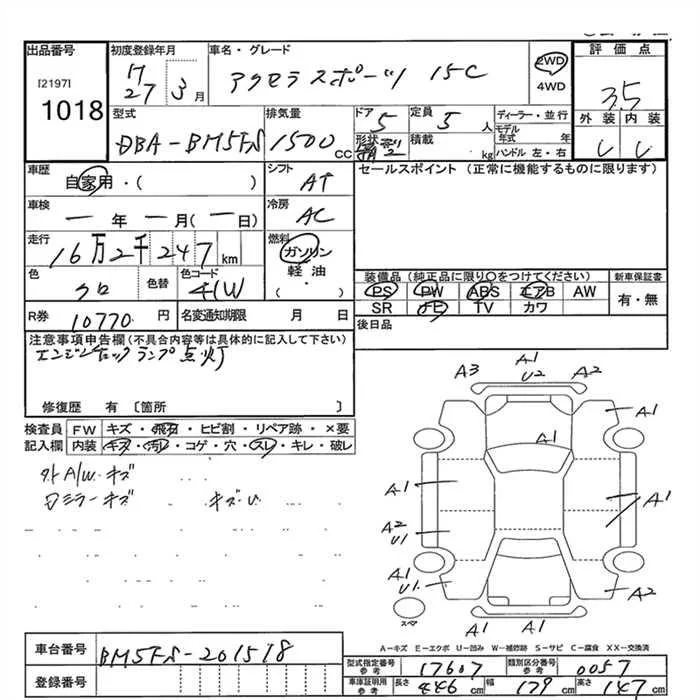 出品番号 初度登録年月 車名・グレード 評価点
[2197]
1018
27 3月 アクセラスポーツ 15C 2WD
4WD
3.5
型式 排気量 ドア 定員 ディーラー・並行 外装 内装
DBA-BM5FS 1500cc 5 5人 モデル年式 年
形状 積載 kg ハンドル 左・右
車歴 シフト セールスポイント(正常に機能するものに限ります)
自家用・( ) AT
車検 冷房
ー年ー月(ー日) AC
走行 燃料
16万2千247km ガソリン
軽油
( )
色 色替 色コード
クロ 41W
装備品(純正品に限り〇をつけてください) 新車保証書
PS PW ABS エアB AW 有・無
SR TV カワ
R券 10770円 名変通知期限 月 日
後日品
注意事項申告欄(不具合内容等は具体的に記入して下さい)
エンジンチェックランプ点灯
修復歴 有 〔箇所 〕
検査員 FW キズ・飛石・ヒビ割・リペア跡・×要
記入欄 内装 キズ・汚レ・コゲ・穴・スレ・キレ・破レ
外A/W キズ
ミラーキズ キズ・U
A3 A1 U2 A2
A1
A1
A1 A1
A2 U1
A1 U1 A2
スペア
A1 A1
A-キズ E-エクボ U-凹み W-補修跡 S-サビ C-腐食 XX-交換済
車台番号 BM5FS-201518
登録番号
型式指定番号 参考 17607 類別区分番号 参考 0057
車庫証明用 参考 長さ 446cm 幅 179cm 高さ 147cm